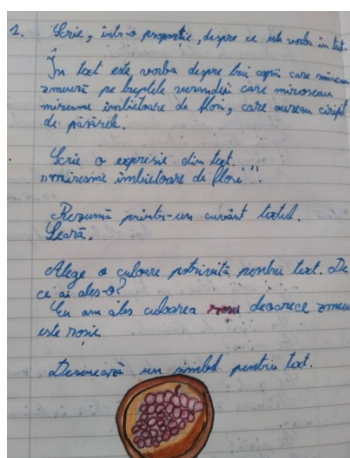 1. Scrie, într-o propoziție, despre ce este vorba în text.
În text este vorba despre trei copii care mâncau
zmeură pe treptele verandei care miroseau
miresme îmbietoare de flori, care auzeau ciripit
de păsărele.
Scrie o expresie din text.
"miresme îmbietoare de flori".
Rezumă printr-un cuvânt textul.
Seară.
Alege o culoare potrivită pentru text. De
ce ai ales-o?
Eu am ales culoarea roșu deoarece zmeura
este roșie.
Desenează un simbol pentru text.